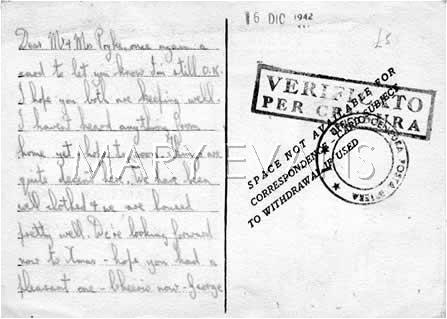 Dear Mr & Mrs once again a
card to let you know I'm still O.K.
I hope you both are keeping well.
I haven't heard anything from
home yet, hope to soon. Things are
quite decent here. We have been
well clothed & we are housed
pretty well. We're looking forward
now to Xmas - hope you had a
pleasant one - Cheerio now - George
16 DIC 1942
VERIFICATO
PER CENSURA
SPACE NOT AVAILABLE FOR
CORRESPONDENCE - CARD SUBJECT
TO WITHDRAWAL IF USED
CENSURA POSTA ESTERA
MARY EVANS